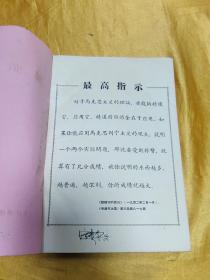 最高指示
对于马克思主义的理论，要能够精通
它、应用它，精通的目的全在于应用。如
果你能应用马克思列宁主义的观点，说明
一个两个实际问题，那就要受到称赞，就
算有了几分成绩。被你说明的东西越多，
越普遍，越深刻，你的成绩就越大。
《整顿党的作风》（一九四二年二月一日），
《毛泽东选集》第三卷第八一七页